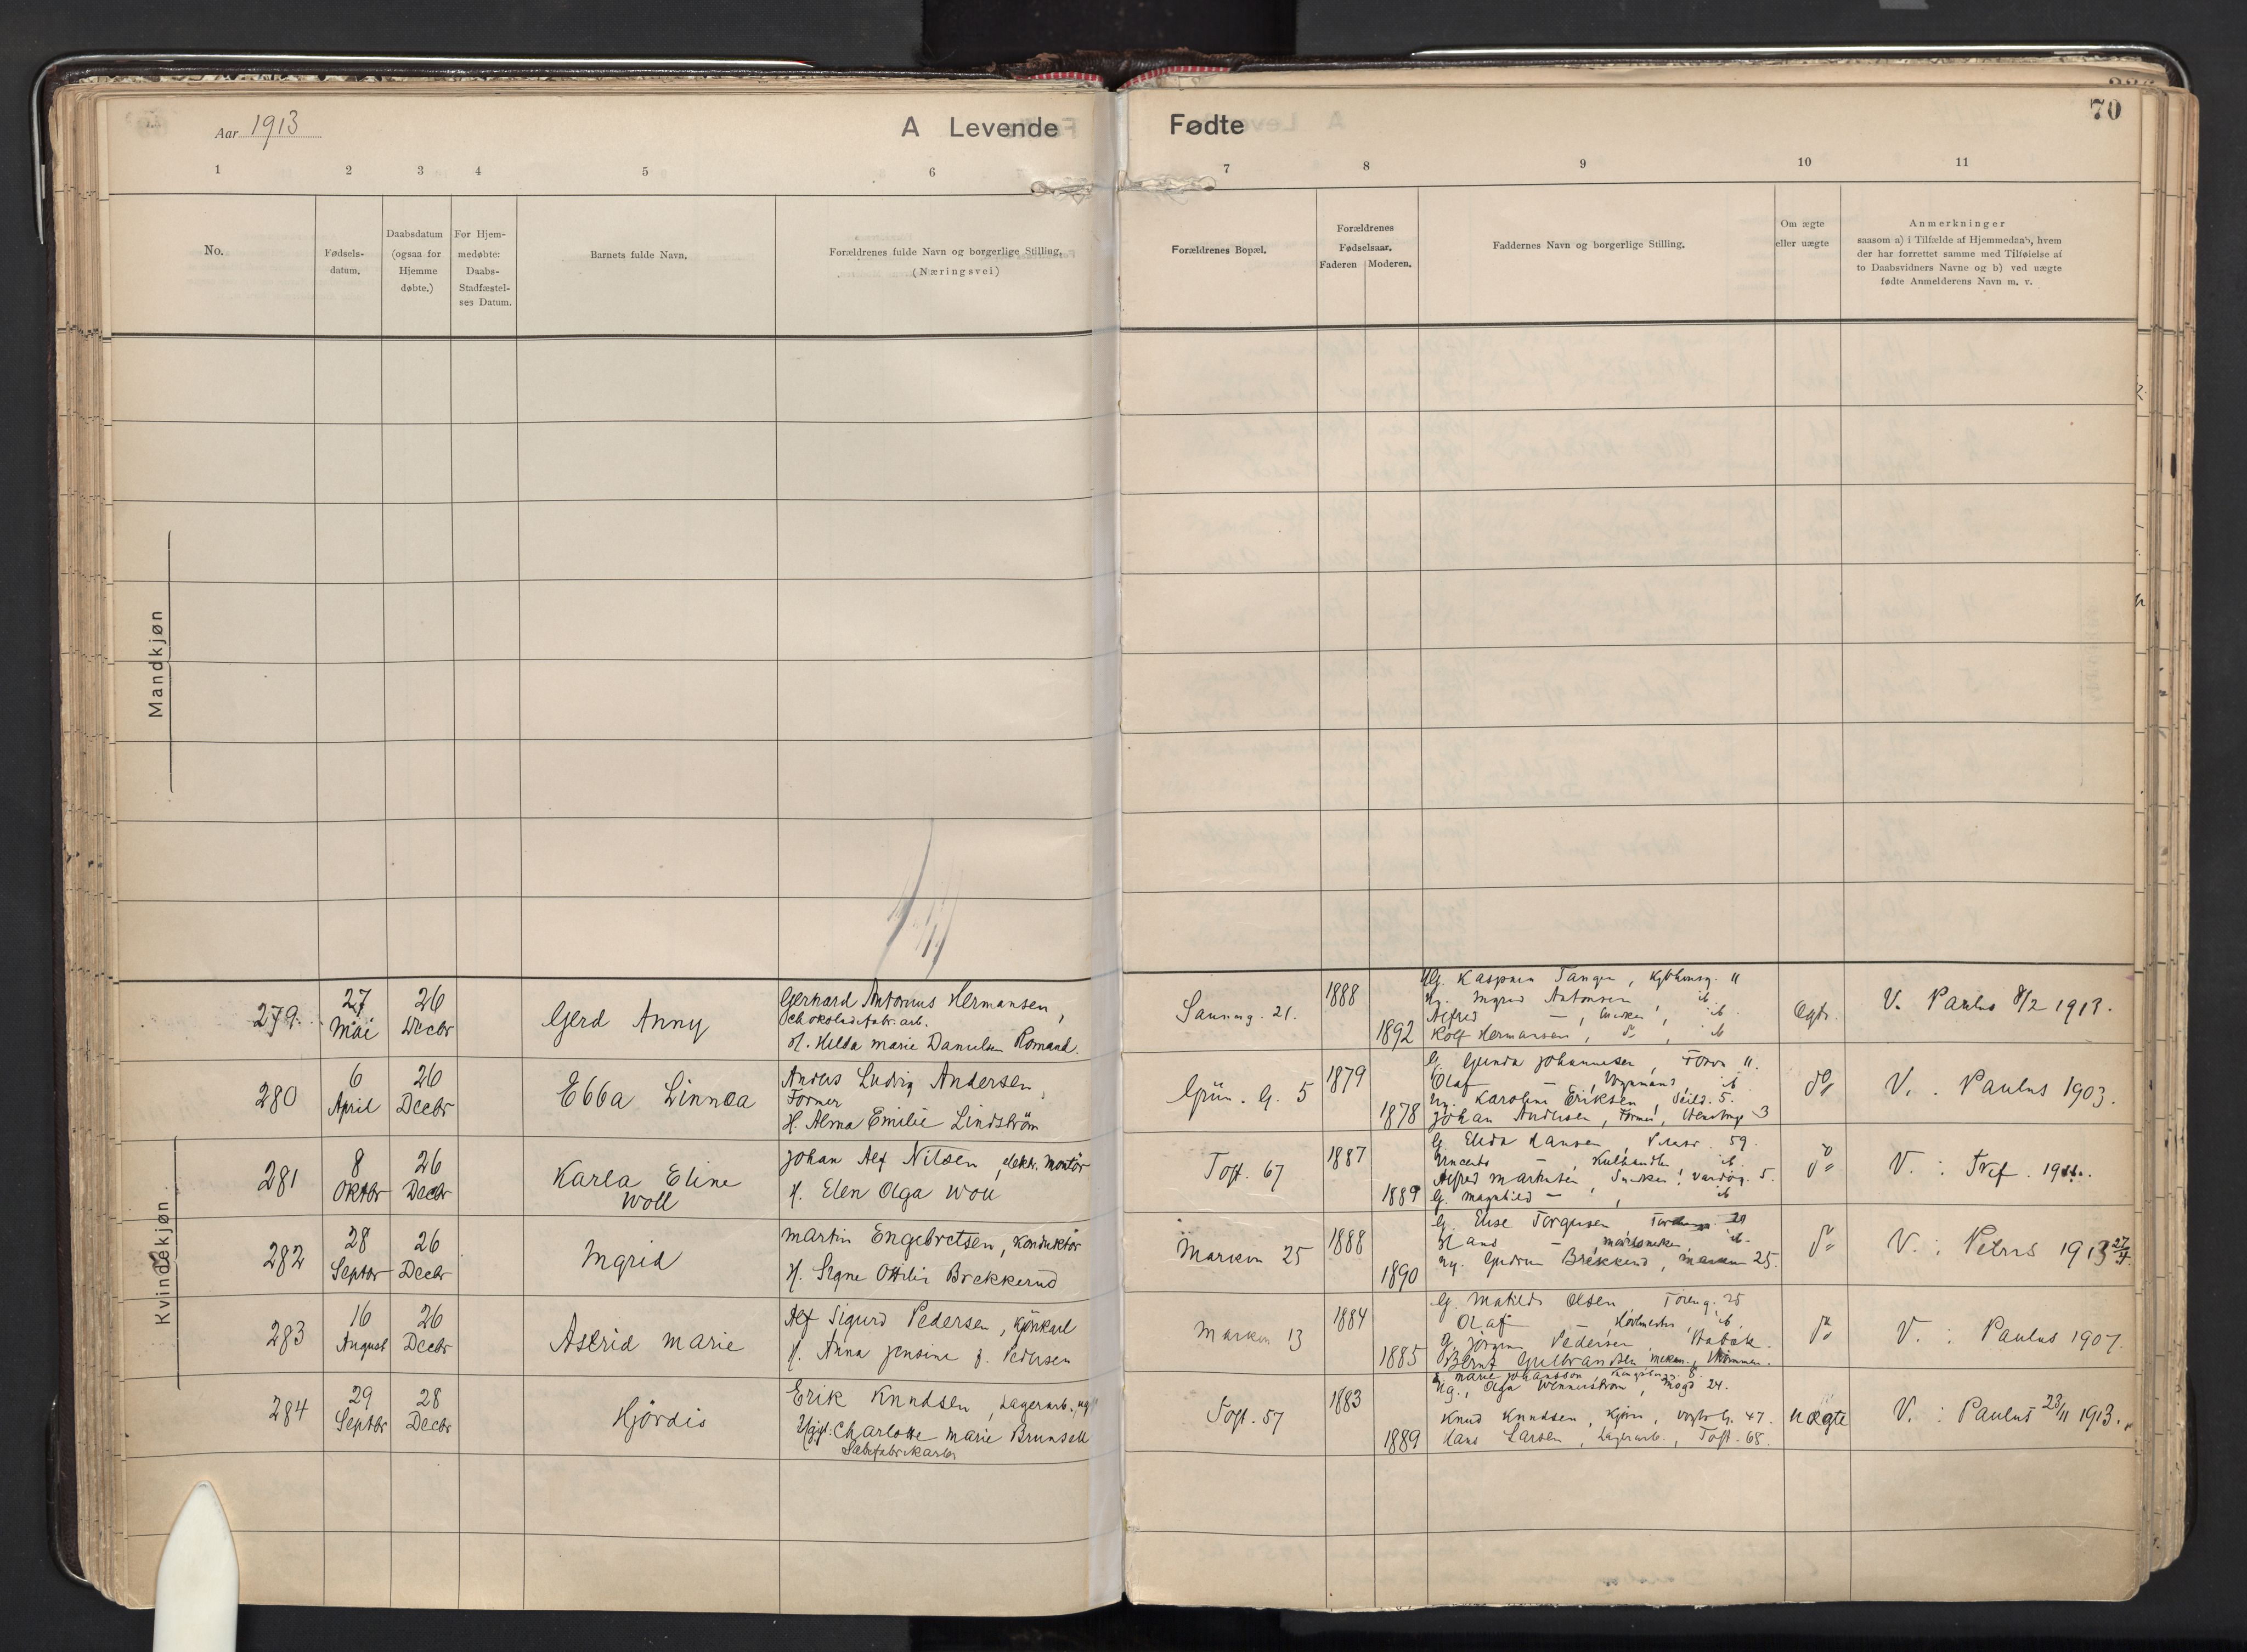 Aar 1913
A Levende Fødte
70
1 2 3 4 5 6 7 8 9 10 11
No.
Fødsels-
datum.
Daabsdatum
(ogsaa for
Hjemme
døbte.)
For Hjem-
medøbte:
Daabs-
Stadfæstel-
ses Datum.
Barnets fulde Navn.
Forældrenes fulde Navn og borgerlige Stilling.
(Næringsvei)
Forældrenes Bopæl.
Forældrenes
Fødselsaar.
Faderen Moderen.
Faddernes Navn og borgerlige Stilling.
Om ægte
eller uægte
Anmerkninger
saasom a) i Tilfælde af Hjemmedaab, hvem
der har forrettet samme med Tilføielse af
to Daabsvidners Navne og b) ved uægte
fødte Anmelderens Navn m. v.
Mandkjøn
Kvindekjøn
279.
27
Mai
26
Decbr
Gerd Anny
Gerhard Antonius Hermansen,
Schokoladefabr. arb.
H. Hilda Marie Danielsen Romand.
21.
1888
1892
Tangen,
Ingrid Antonsen
Alfred
Rolf Hermansen,
Egte.
V. Paulus 8/2 1913.
280
6
April
26
Decbr
Ebba Linnea
Anders Ludvig Andersen,
Former
H. Alma Emilie Lindström
Grün. G. 5
1879
1878
G. Gunda Johannesen,
Olaf
Karoline Eriksen, Seild. 5.
Johan Andersen, Former, 3
do
V. : Paulus 1903.
281
8
Oktbr
26
Decbr
Karla Eline
Woll
Johan Alf Nilsen, elektr. Montör
H. Elen Olga Woll
Toft. 67
1887
1889
G. Elida Hansen, 59.
Kulhandler
Alfred Martinsen, 5.
G. Magnhild
do
V. :
282
28
Septbr
26
Decbr
Ingrid
Martin Engebretsen, Konduktör
H. Signe Ottilie Brekkerud
Marken 25
1888
1890
G. Else Torgersen,
Hans
Gudrun Brekkerud, Marken 25.
do
V. : Petrus 1913 27/4.
283
16
August
26
Decbr
Astrid Marie
Alf Sigurd Pedersen, Kjörekarl
H. Anna Jensine f. Pedersen
Marken 13
1884
1885
G. Matilde Olsen, 25
Olaf
G. Jörgen Pedersen, Stabæk.
Bernt Gulbrandsen
do
V. : Paulus 1907.
284
29
Septbr
28
Decbr
Hjördis
Erik Knudsen, Lagerarb., ugift
Ugift: Charlotte Marie Brunsell
Sæbefabrikarb.
Toft. 57
1883
1889
Marie Johansson
Ug., Olga Wennerström, 24.
Knud Knudsen, 47.
Hans Larsen, Lagerarb., Toft. 68.
uægte
V. : Paulus 23/11 1913.